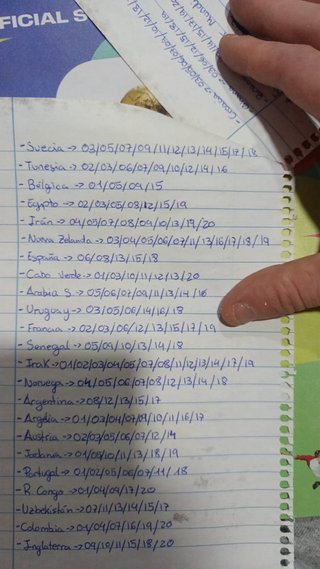 FICIAL S
- Suecia → 03/05/07/09/11/12/13/14/15/17/18
- Tunesia → 02/03/06/07/09/10/12/14/16
- Bélgica → 01/05/09/15
- Egipto → 02/03/05/08/12/15/19
- Irán → 04/05/07/08/09/10/13/19/20
- Nueva Zelanda → 03/04/05/06/07/11/13/16/17/18/19
- España → 06/08/13/15/18
- Cabo Verde → 01/03/10/11/12/13/20
- Arabia S. → 05/06/07/09/11/13/14/16
- Uruguay → 03/05/06/14/16/18
- Francia → 02/03/06/12/13/15/17/19
- Senegal → 05/09/10/13/14/18
- Irak → 01/02/03/04/05/07/08/11/12/13/14/17/19
- Noruega → 04/05/06/07/08/12/13/14/18
- Argentina → 08/12/13/15/17
- Argelia → 01/03/04/07/09/10/11/16/17
- Austria → 02/03/05/06/07/12/14
- Jordania → 01/05/10/11/13/18/19
- Portugal → 01/02/05/06/07/11/18
- R. Congo → 01/04/09/17/20
- Uzbekistón → 07/11/13/14/15/17
- Colombia → 01/04/07/16/19/20
- Inglaterra → 09/10/11/15/18/20